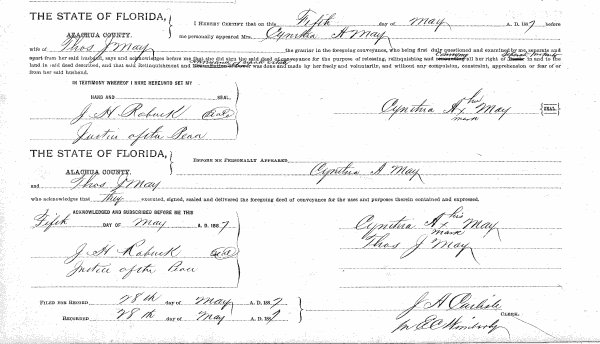 THE STATE OF FLORIDA,
ALACHUA COUNTY.
I HEREBY CERTIFY that on this Fifth day of May A. D. 1887 before
me personally appeared Mrs. Cynthia A May
wife of Thos J May the grantor in the foregoing conveyance, who being first duly questioned and examined by me, separate and
apart from her said husband, says and acknowledges before me that she did sign the said deed of conveyance for the purpose of releasing, relinquishing and conveying all her right of in and to the
land in said deed described, and that said was done and made by her freely and voluntarily, and without any compulsion, constraint, apprehension or fear of or
from her said husband.
IN TESTIMONY WHEREOF I HAVE HEREUNTO SET MY
HAND AND SEAL.
J H Roback Seal
Justice of the Peace
Cynthia A his x mark May SEAL.
THE STATE OF FLORIDA,
ALACHUA COUNTY.
BEFORE ME PERSONALLY APPEARED
Cynthia A May
and Thos J May
who acknowledges that they executed, signed, sealed and delivered the foregoing deed of conveyance for the uses and purposes therein contained and expressed.
ACKNOWLEDGED AND SUBSCRIBED BEFORE ME THIS
Fifth DAY OF May A. D. 1887
J H Roback Seal
Justice of the Peace
Cynthia A his x mark May
Thos J May
FILED FOR RECORD 28th day of May A. D. 1887
RECORDED 28th day of May A. D. 1887
J A Carlisle CLERK.
per E C Wimberly